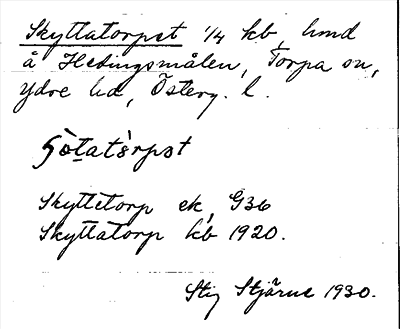 Skyttatorpet 1/4 kb, hmd
å Hebingsmålen, Torpa sn,
Ydre hd, Österg. l.
Skyttetorp ek, G36
Skyttatorp kb 1920.
Stig Stjärne 1930.